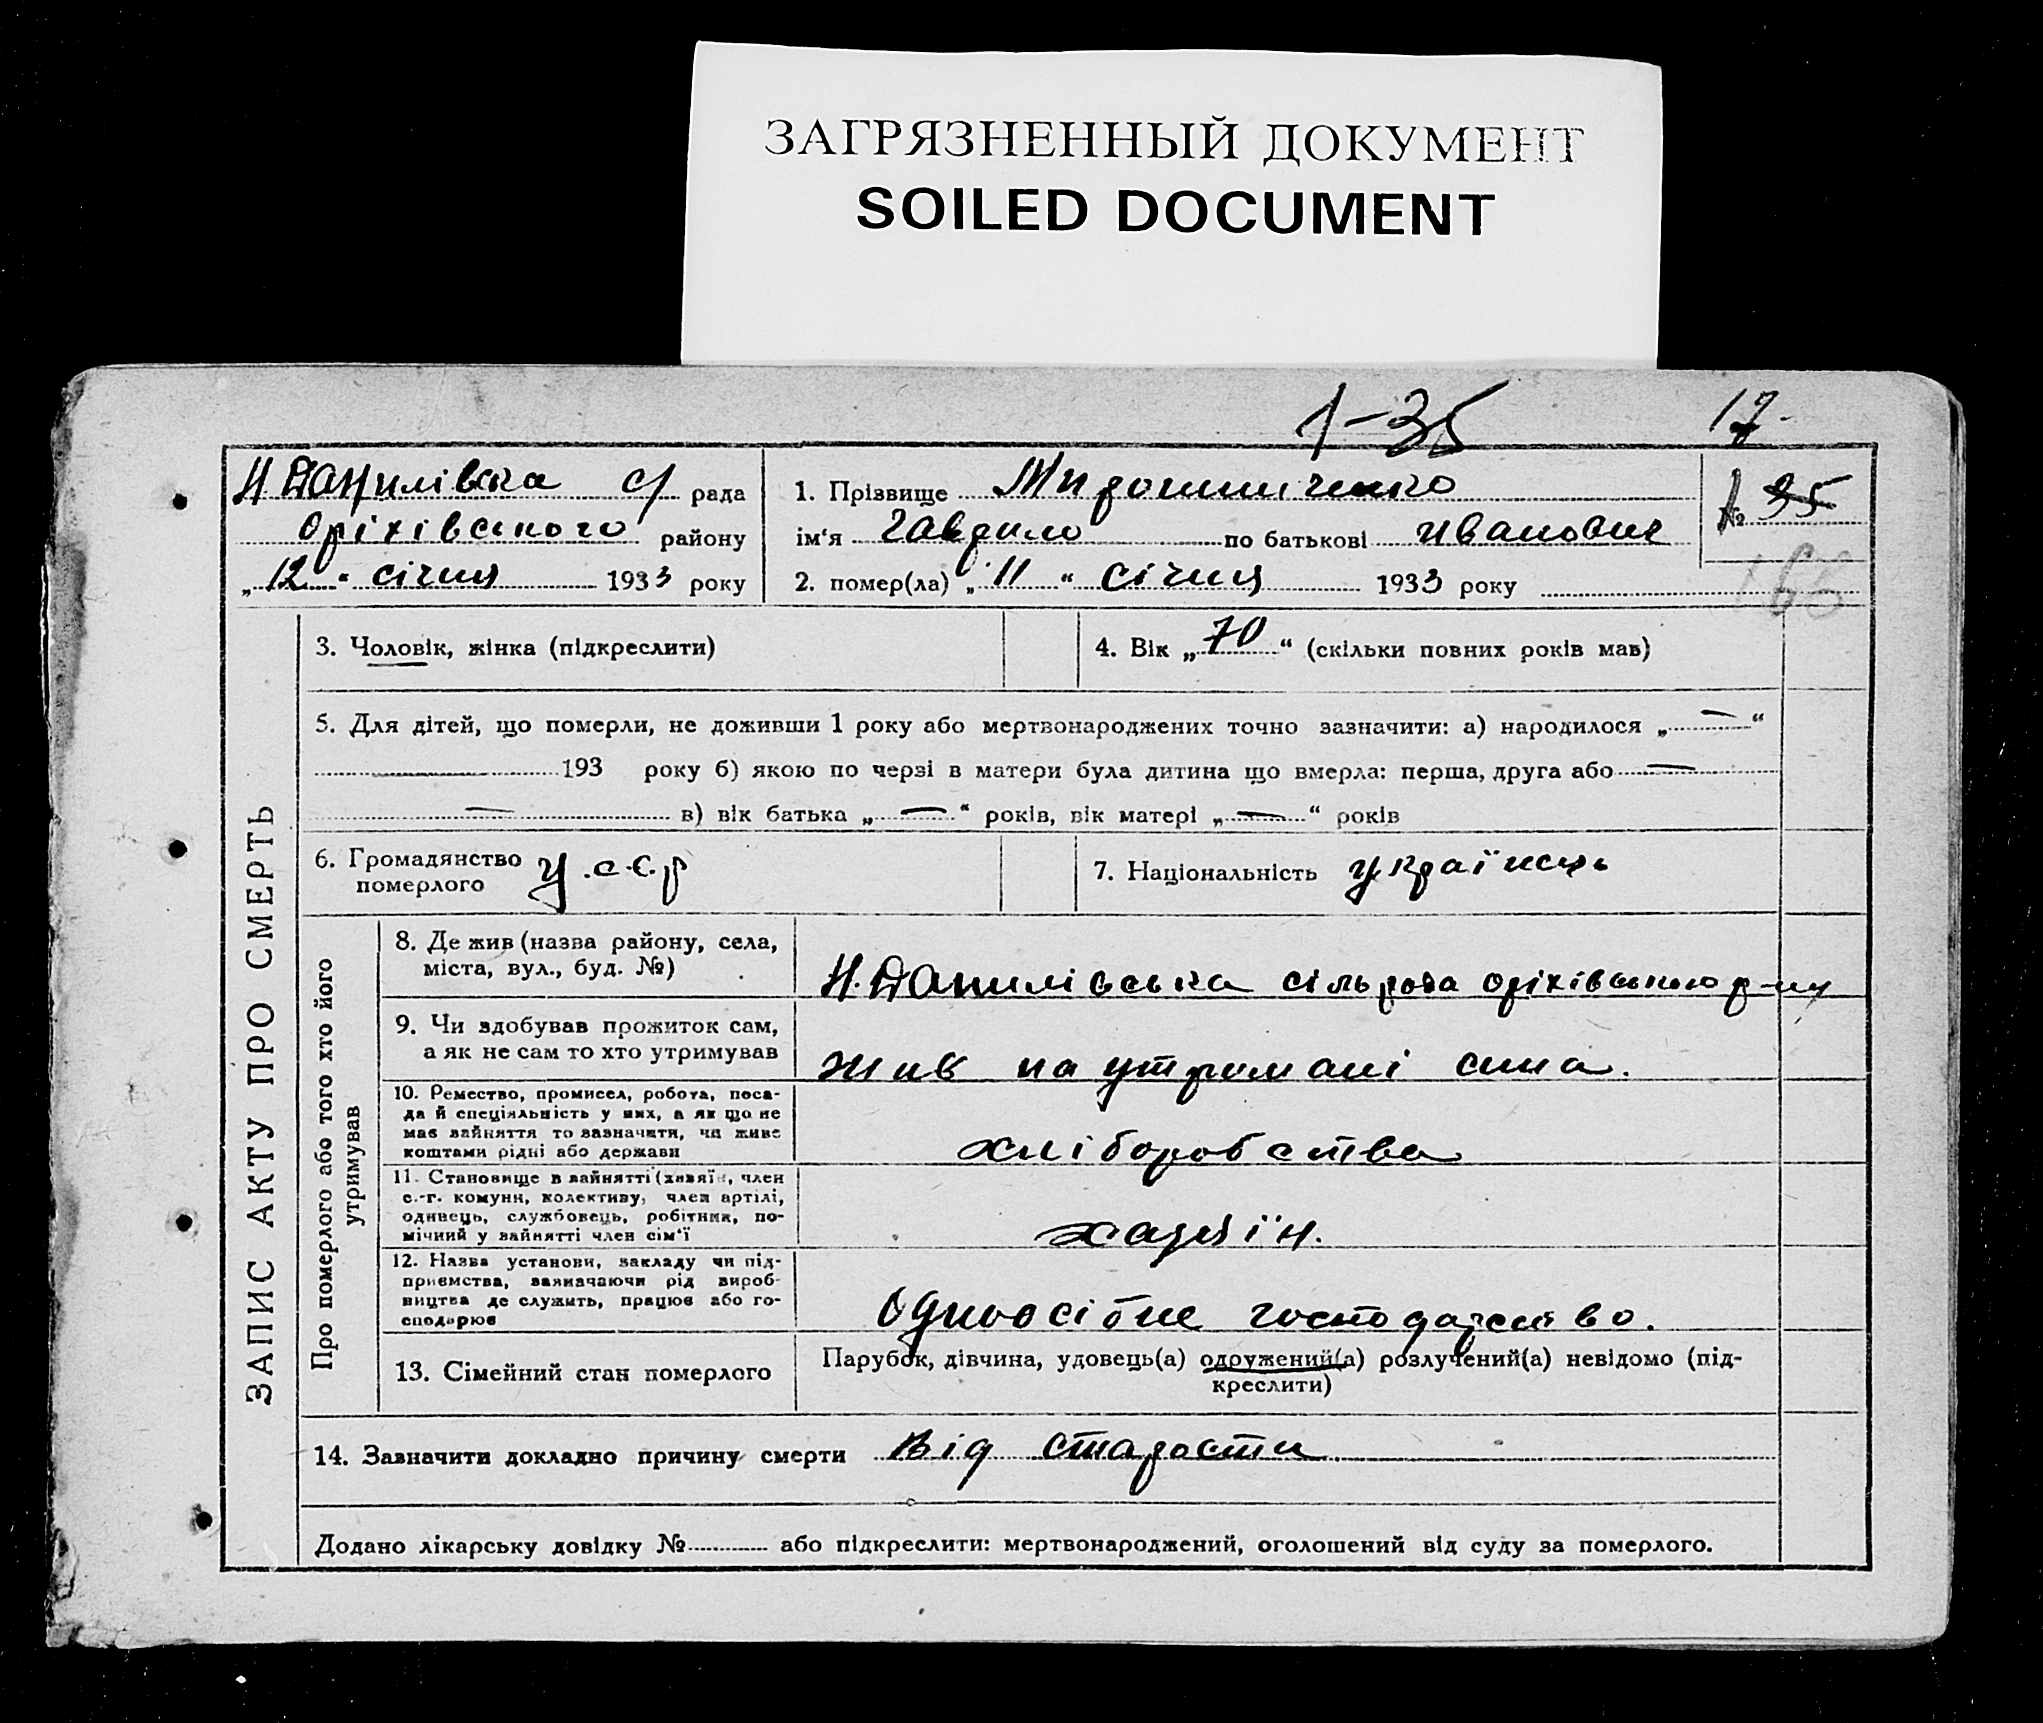 ЗАГРЯЗНЕННЫЙ ДОКУМЕНТ
SOILED DOCUMENT
1-35
17
Н Данилівська с/ рада
Оріхівського району
„12“ січня 1933 року
1. Прізвище Мирошниченко
ім‘я Гаврило по батькові Иванович
2. помер(ла) „11“ січня 1933 року
№ 35
166
ЗАПИС АКТУ ПРО СМЕРТЬ
3. Чоловік, жінка (підкреслити)
4. Вік „70“ (скільки повних років мав)
5. Для дітей, що померли, не доживши 1 року або мертвонароджених точно зазначити: а) народилося „—“
193 року б) якою по черзі в матери була дитина що вмерла: перша, друга або —
— в) вік батька „—“ років, вік матері „—“ років
6. Громадянство
померлого У.с.є.р
7. Національність українець
Про померлого або того хто його
утримував
8. Де жив (назва району, села,
міста, вул., буд. №)
Н. Данилівська сільрада Оріхівського р-ну
9. Чи здобував прожиток сам,
а як не сам то хто утримував
Жив на утримані сина.
10. Ремество, промисел, робота, поса-
да й спеціяльність у них, а як що не
має зайняття то зазначити, чи живе
коштами рідні або держави
хліборобства
11. Становище в зайнятті (хазяїн, член
с.-г. комуни, колективу, член артілі,
одинець, службовець, робітник, по-
мічний у зайнятті член сім‘ї
хазяїн.
12. Назва установи, закладу чи під-
приємства, зазначаючи рід вироб-
ництва де служить, працює або го-
сподарює
Одноосібне господарство.
13. Сімейний стан померлого
Парубок, дівчина, удовець(а) одружений(а) розлучений(а) невідомо (під-
креслити)
14. Зазначити докладно причину смерти Від старости
Додано лікарську довідку № або підкреслити: мертвонароджений, оголошений від суду за померлого.